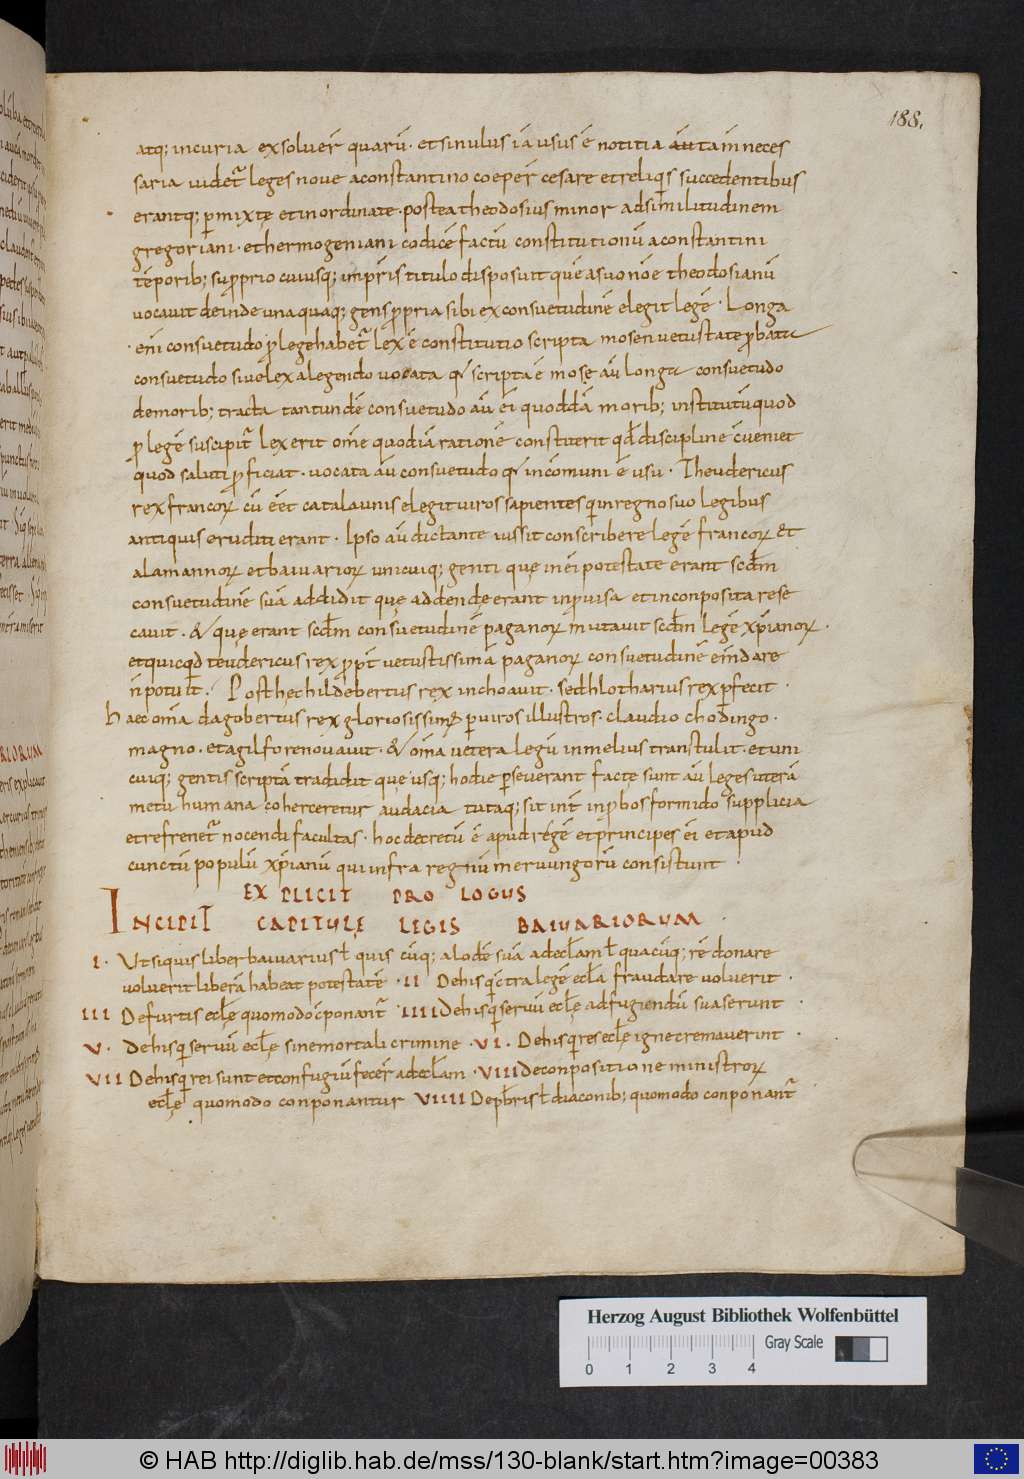 188.
atq; incuria exsoluer̄ quarū. et si nulus iā usus ē notitia aūtam neces
saria uidet̄ leges noue aconstantino coeper̄ cesare et reliq̄s succedentibus
erantq; p̄mixtę et inordinate. postea theodosius minor ad similitudinem
gregoriani. et hermogeniani codicē factū constitutionū aconstantini
tēporib; sup̄prio cuiusq; imp̄ris titulo disposuit quē asuo nōe theodosianū
uocauit deinde unaquaq; gens p̄pria sibi ex consuetudinē elegit legē. Longa
enī consuetudo p̄ lege habet̄ lex ē constitutio scripta mos en uetustate p̄bata
consuetudo siue lex alegendo uocata q̄ scripta ē mos ę aū longa consuetudo
demorib; tracta tantundē consuetudo aū ēi quoddā morib; institutū quod
p̄ legē suscipit̄ lex erit om̄e quod iā rationē constiterit qd̄ discipline cūeniet
quod saluti p̄ficiat. uocata aū consuetudo q̄ incōmuni ē usu. Theudericus
rex francoꝝ cū ēet catalaunis elegit uiros sapientes q̄ inregno suo legibus
antiquis eruditi erant. Ipso aū dictante iussit conscribere legē francoꝝ et
alamannoꝝ et baiuarioꝝ unicuiq; genti quę inei potestate erant scdm̄
consuetudinē suā addidit quę addendę erant inp̄uisa et inconposita rese
cauit. & quę erant scdm̄ consuetudinē paganoꝝ mutauit scdm̄ legē xp̄ianoꝝ.
et quicqd̄ teudericus rex p̄pt̄ uetustissimā paganoꝝ consuetudinē emdare
n̄ potuit. Post hec hildebertus rex inchoauit. sed hlotharius rex p̄fecit.
haec om̄a dagobertus rex gloriosissim; p̄ uiros illustros. claudio chodingo.
magno. et agilfo renouauit. & om̄a uetera legū inmelius transtulit. et uni
cuiq; gentis scriptā tradidit quę usq; hodie p̄seuerant facte sunt aū leges ut erā
metu humana coherceretur audacia tutaq; sit int̄ inp̄bos formido supplicia
et refrenet̄ nocendi facultas. hoc decretū ē apud rēgē et principes ēi et apud
cunctū populū xp̄ianū qui infra regnū meruungorū consistunt.
EXPLICIT PROLOGUS
INCIPIT CAPITULĘ LEGIS BAIUARIORUM.
I. Ut siquis liber baiuarius ł quis cūq; alodē suā ad ecłam ł quacūq; rē donare
uoluerit liberā habeat potestatē. II Dehis q̄ c̄tra legē ecłā fraudare uoluerit.
III De furtis ecłę quomodo c̄ponant̄. IIII Dehis q̄ seruū ecłę ad fugiendū suaserunt.
V. Dehis q̄ seruū ecłę sine mortali crimine. VI. Dehis q̄ res ecłę igne cremauerint.
VII Dehis q̄ rei sunt et confugiū fecer̄ ad ecłam. VIII De conpositione ministroꝝ
ecłę quomodo conponantur VIIII De p̄bris ł diaconib; quomodo conponant̄
Herzog August Bibliothek Wolfenbüttel
Gray Scale
0 1 2 3 4
© HAB http://diglib.hab.de/mss/130-blank/start.htm?image=00383